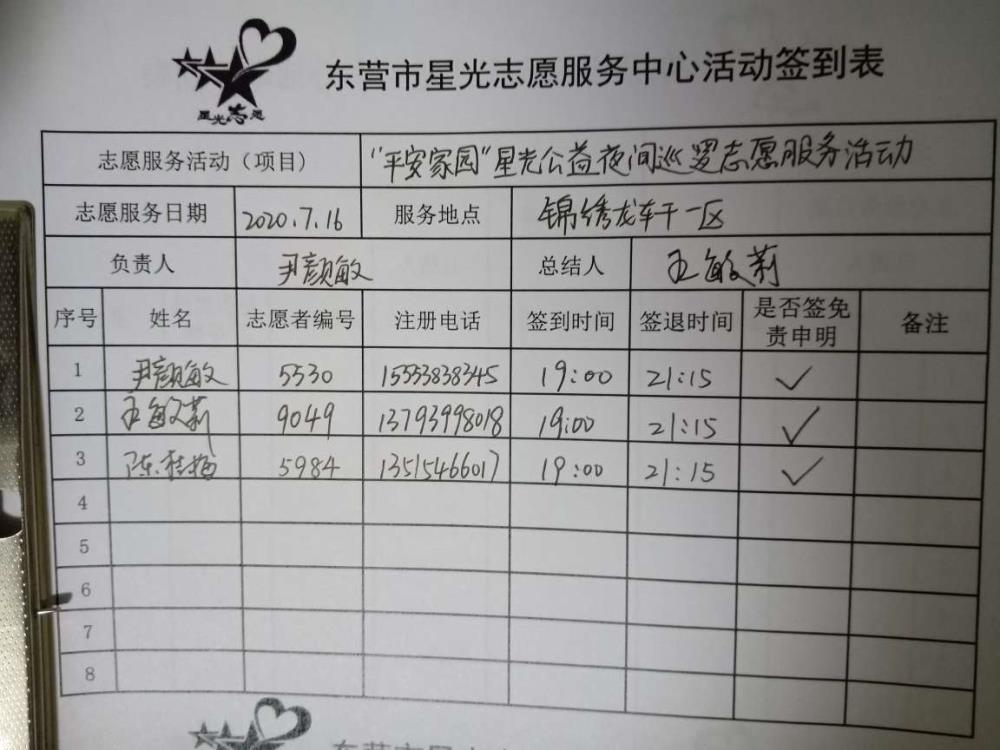 星光志愿
东营市星光志愿服务中心活动签到表
志愿服务活动（项目） “平安家园”星光公益夜间巡逻志愿服务活动
志愿服务日期 2020.7.16 服务地点 锦绣龙轩一区
负责人 尹颜敏 总结人 王敏莉
序号 姓名 志愿者编号 注册电话 签到时间 签退时间 是否签免责申明 备注
1 尹颜敏 5530 15553838345 19:00 21:15 ✓
2 王敏莉 9049 13793998018 19:00 21:15 ✓
3 陈桂梅 5984 13515466017 19:00 21:15 ✓
4
5
6
7
8
东营市星